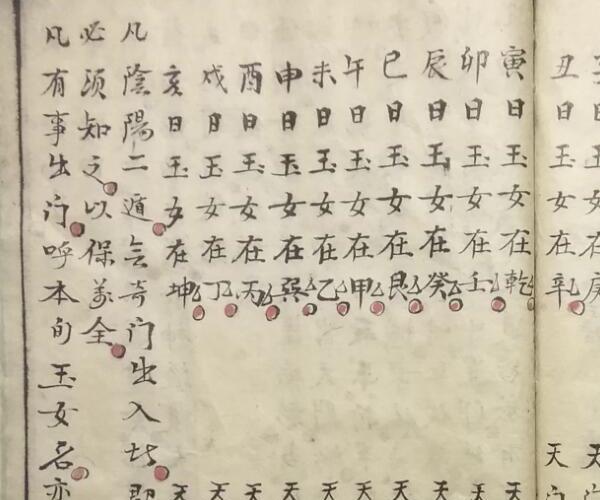 日玉女在庚 天
丑日玉女在辛 天
寅日玉女在乾 天
卯日玉女在壬 天
辰日玉女在癸 天
巳日玉女在艮 天
午日玉女在甲 天
未日玉女在乙 天
申日玉女在巽 天
酉日玉女在丙 天
戌日玉女在丁 天
亥日玉女在坤 天
凡陰陽二遁無奇门出入此即
必須知之以保萬全
凡有事出门呼本旬玉女名亦